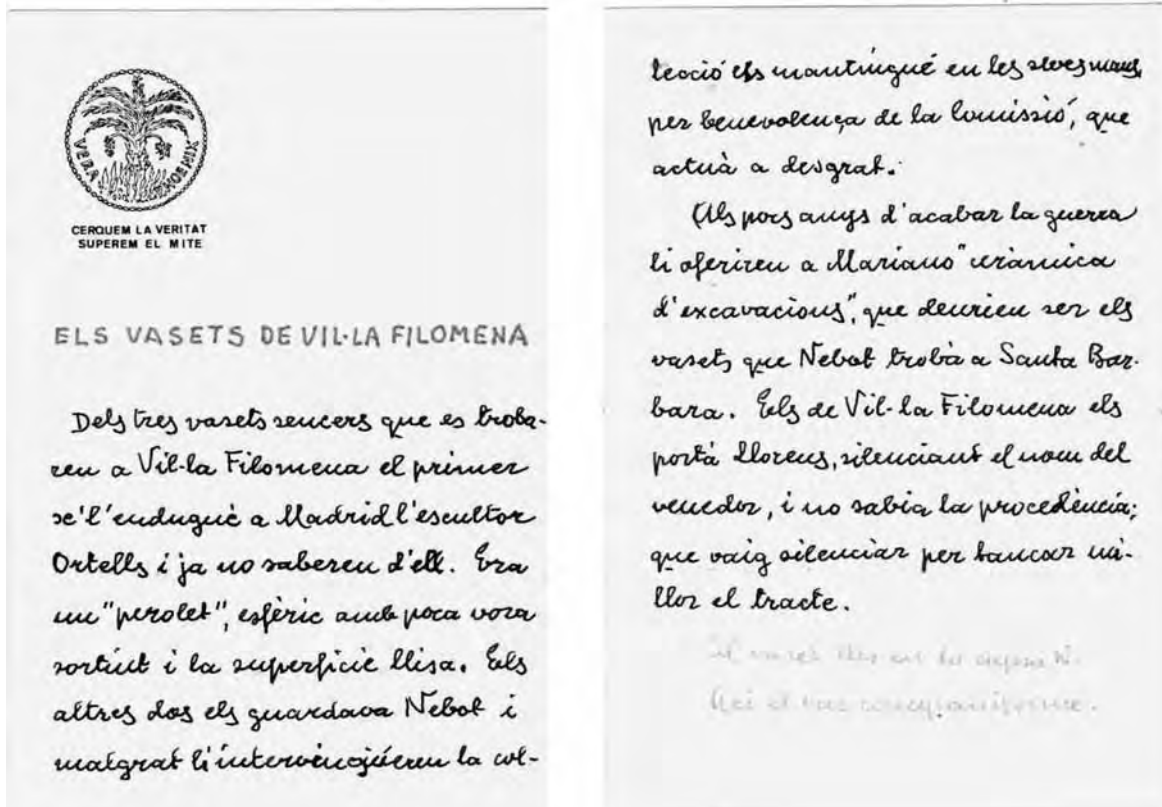 VERA PHOENIX
CERQUEM LA VERITAT
SUPEREM EL MITE
ELS VASETS DE VIL·LA FILOMENA
Dels tres vasets sencers que es troba-
ren a Vil·la Filomena el primer
se'l'endugué a Madrid l'escultor
Ortells i ja no saberen d'ell. Era
un "perolet", esfèric amb poca vora
sortint i la superfície llisa. Els
altres dos els guardava Nebot i
malgrat li intervingueren la col-
lecció els mantingué en les seves mans
per benevolença de la Comissió, que
actuà a desgrat.
Als pocs anys d'acabar la guerra
li oferiren a Mariano "ceràmica
d'excavacions", que deurien ser els
vasets que Nebot trobà a Santa Bar-
bara. Els de Vil·la Filomena els
portà Llorens, silenciant el nom del
venedor, i no sabia la procedència;
que vaig silenciar per tancar mi-
llor el tracte.
El vaset llis em
Ací el vas campaniforme.